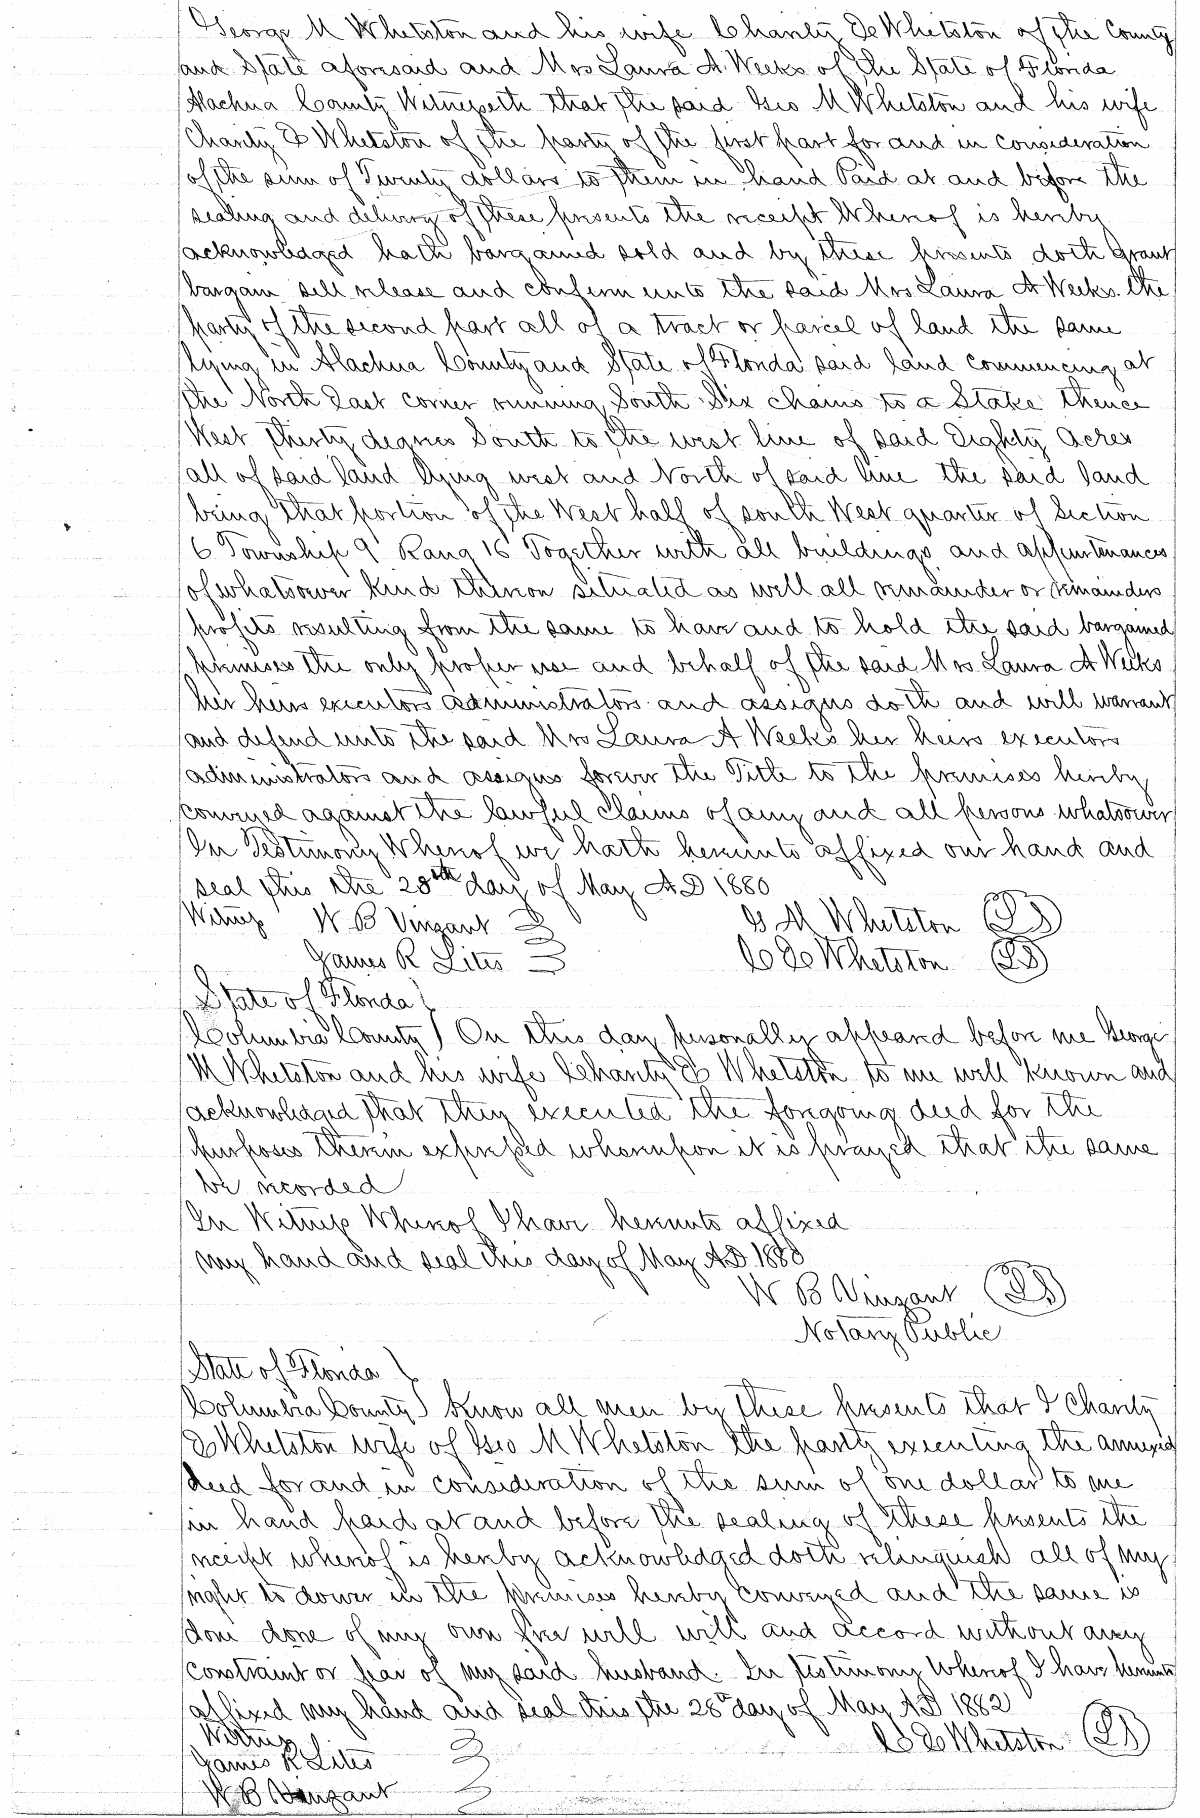 George M Whetston and his wife Charity E Whetston of the County
and State aforesaid and Mrs Laura A Weeks of the State of Florida
Alachua County Witnesseth that the said Geo M Whetston and his wife
Charity E Whetston of the party of the first part for and in consideration
of the sum of Twenty dollars to them in hand Paid at and before the
sealing and delivery of these presents the receipt Whereof is hereby
acknowledged hath bargained sold and by these presents doth Grant
bargain sell release and confirm unto the said Mrs Laura A Weeks the
party of the second part all of a tract or parcel of land the same
lying in Alachua County and State of Florida said land commencing at
the North East corner running South Six chains to a Stake thence
West Thirty degrees South to the west line of said Eighty Acres
all of said land lying west and North of said line the said land
being that portion of the West half of south West quarter of Section
6 Township 9 Rang 16 Together with all buildings and appurtenances
of whatsoever kind thereon situated as well all remainder or remainders
profits resulting from the same to have and to hold the said bargained
premises the only proper use and behalf of the said Mrs Laura A Weeks
her heirs executors administrators and assigns doth and will warrant
and defend unto the said Mrs Laura A Weeks her heirs executors
administrators and assigns forever the Title to the premises hereby
conveyed against the lawful claims of any and all persons whatsoever
In Testimony Whereof we hath hereunto affixed our hand and
seal this the 28th day of May A D 1880
Witness W B Vinzant G M Whetston LS
James R Lites C E Whetston LS
State of Florida }
Columbia County } On this day personally appeard before me George
M Whetston and his wife Charity E Whetston to me well known and
acknowledged that they executed the foregoing deed for the
purposes therein expressed whereupon it is prayed that the same
be recorded
In Witness Whereof I have hereunto affixed
my hand and seal this day of May A D 1880
W B Vinzant LS
Notary Public
State of Florida }
Columbia County } Know all men by these presents that I Charity
E Whetston wife of Geo M Whetston the party executing the annexed
deed for and in consideration of the sum of one dollar to me
in hand paid at and before the sealing of these presents the
receipt whereof is hereby acknowledged doth relinquish all of my
right to dower in the premises hereby conveyed and the same is
done done of my own free will will and accord without any
constraint or fear of my said husband. In testimony Whereof I have hereunto
affixed my hand and seal this the 28th day of May A D 1882
Witness C E Whetston LS
James R Lites
W B Vinzant